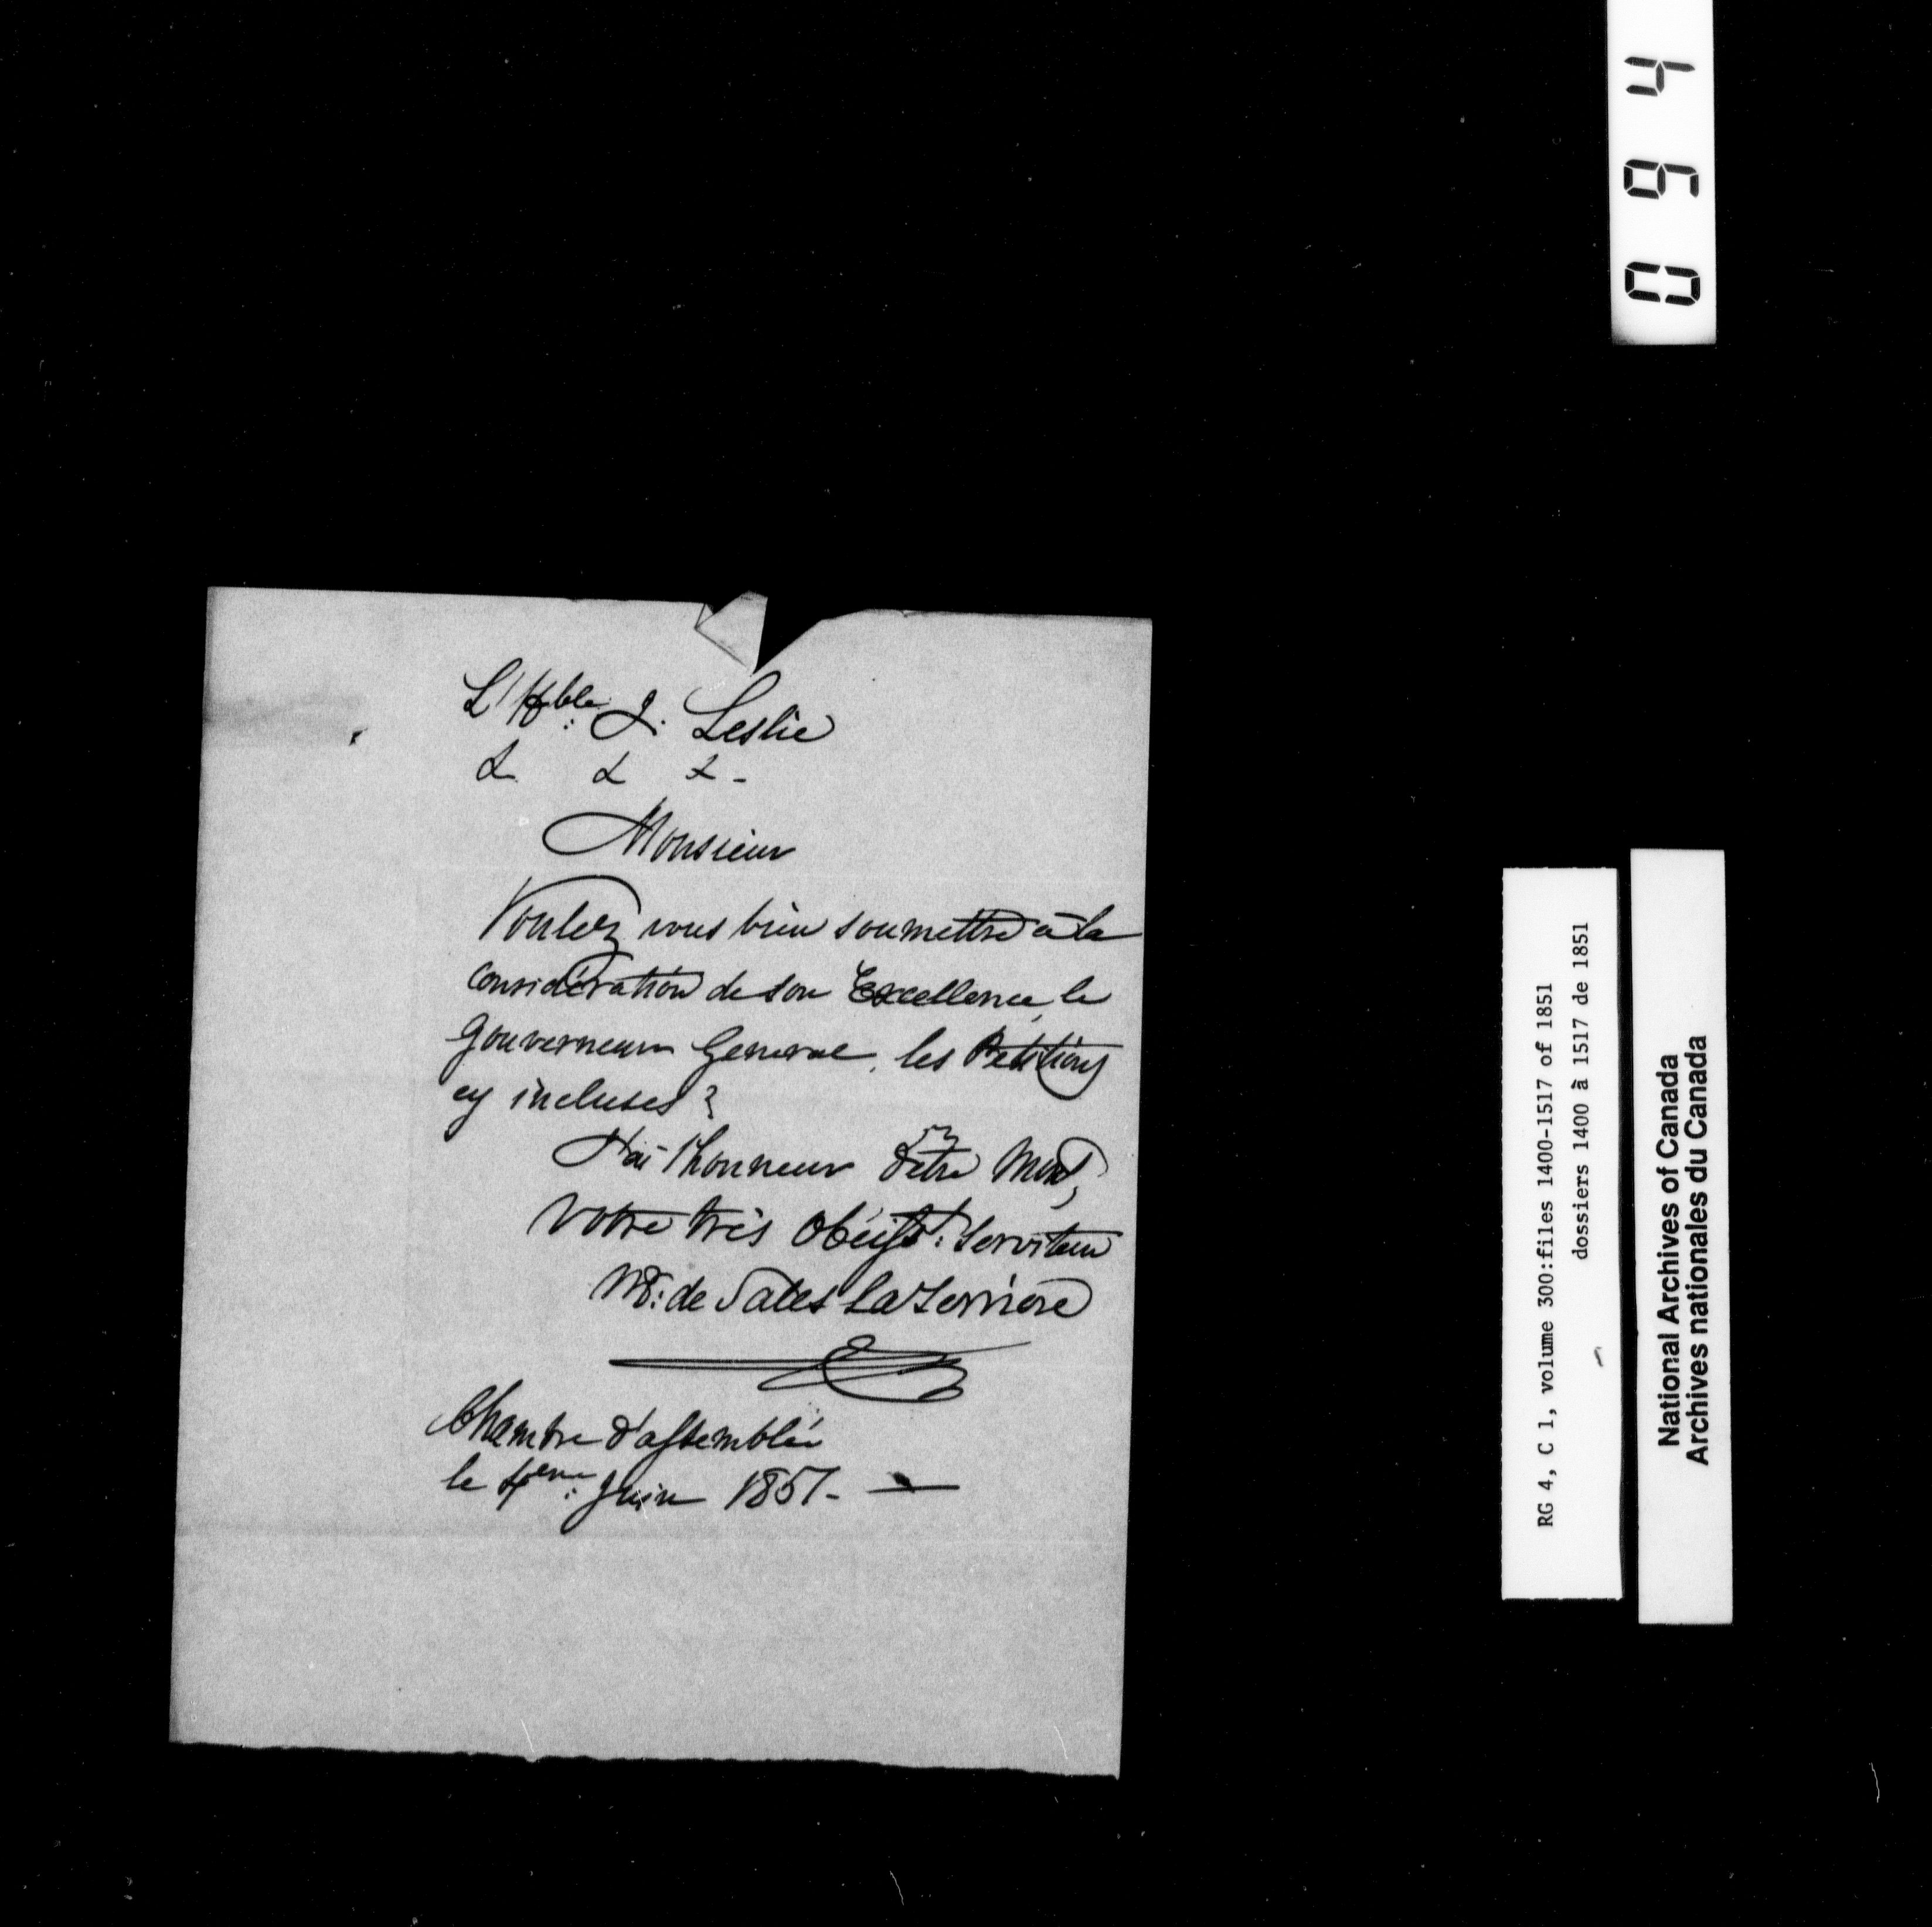 L'Hble: J. Leslie
& & & -
Monsieur
Voulez vous bien soumettre à la
considération de son Excellence, le
Gouverneur General, les Petitions
cy incluses?
J'ai l'honneur d'être Monsr,
Votre très Obéisst: Serviteur
M: de Sales LaTerrière
Chambre d'assemblée
le 4eme: Juin 1851. —
RG 4, C 1, volume 300:files 1400-1517 of 1851
dossiers 1400 à 1517 de 1851
National Archives of Canada
Archives nationales du Canada
0 9 4